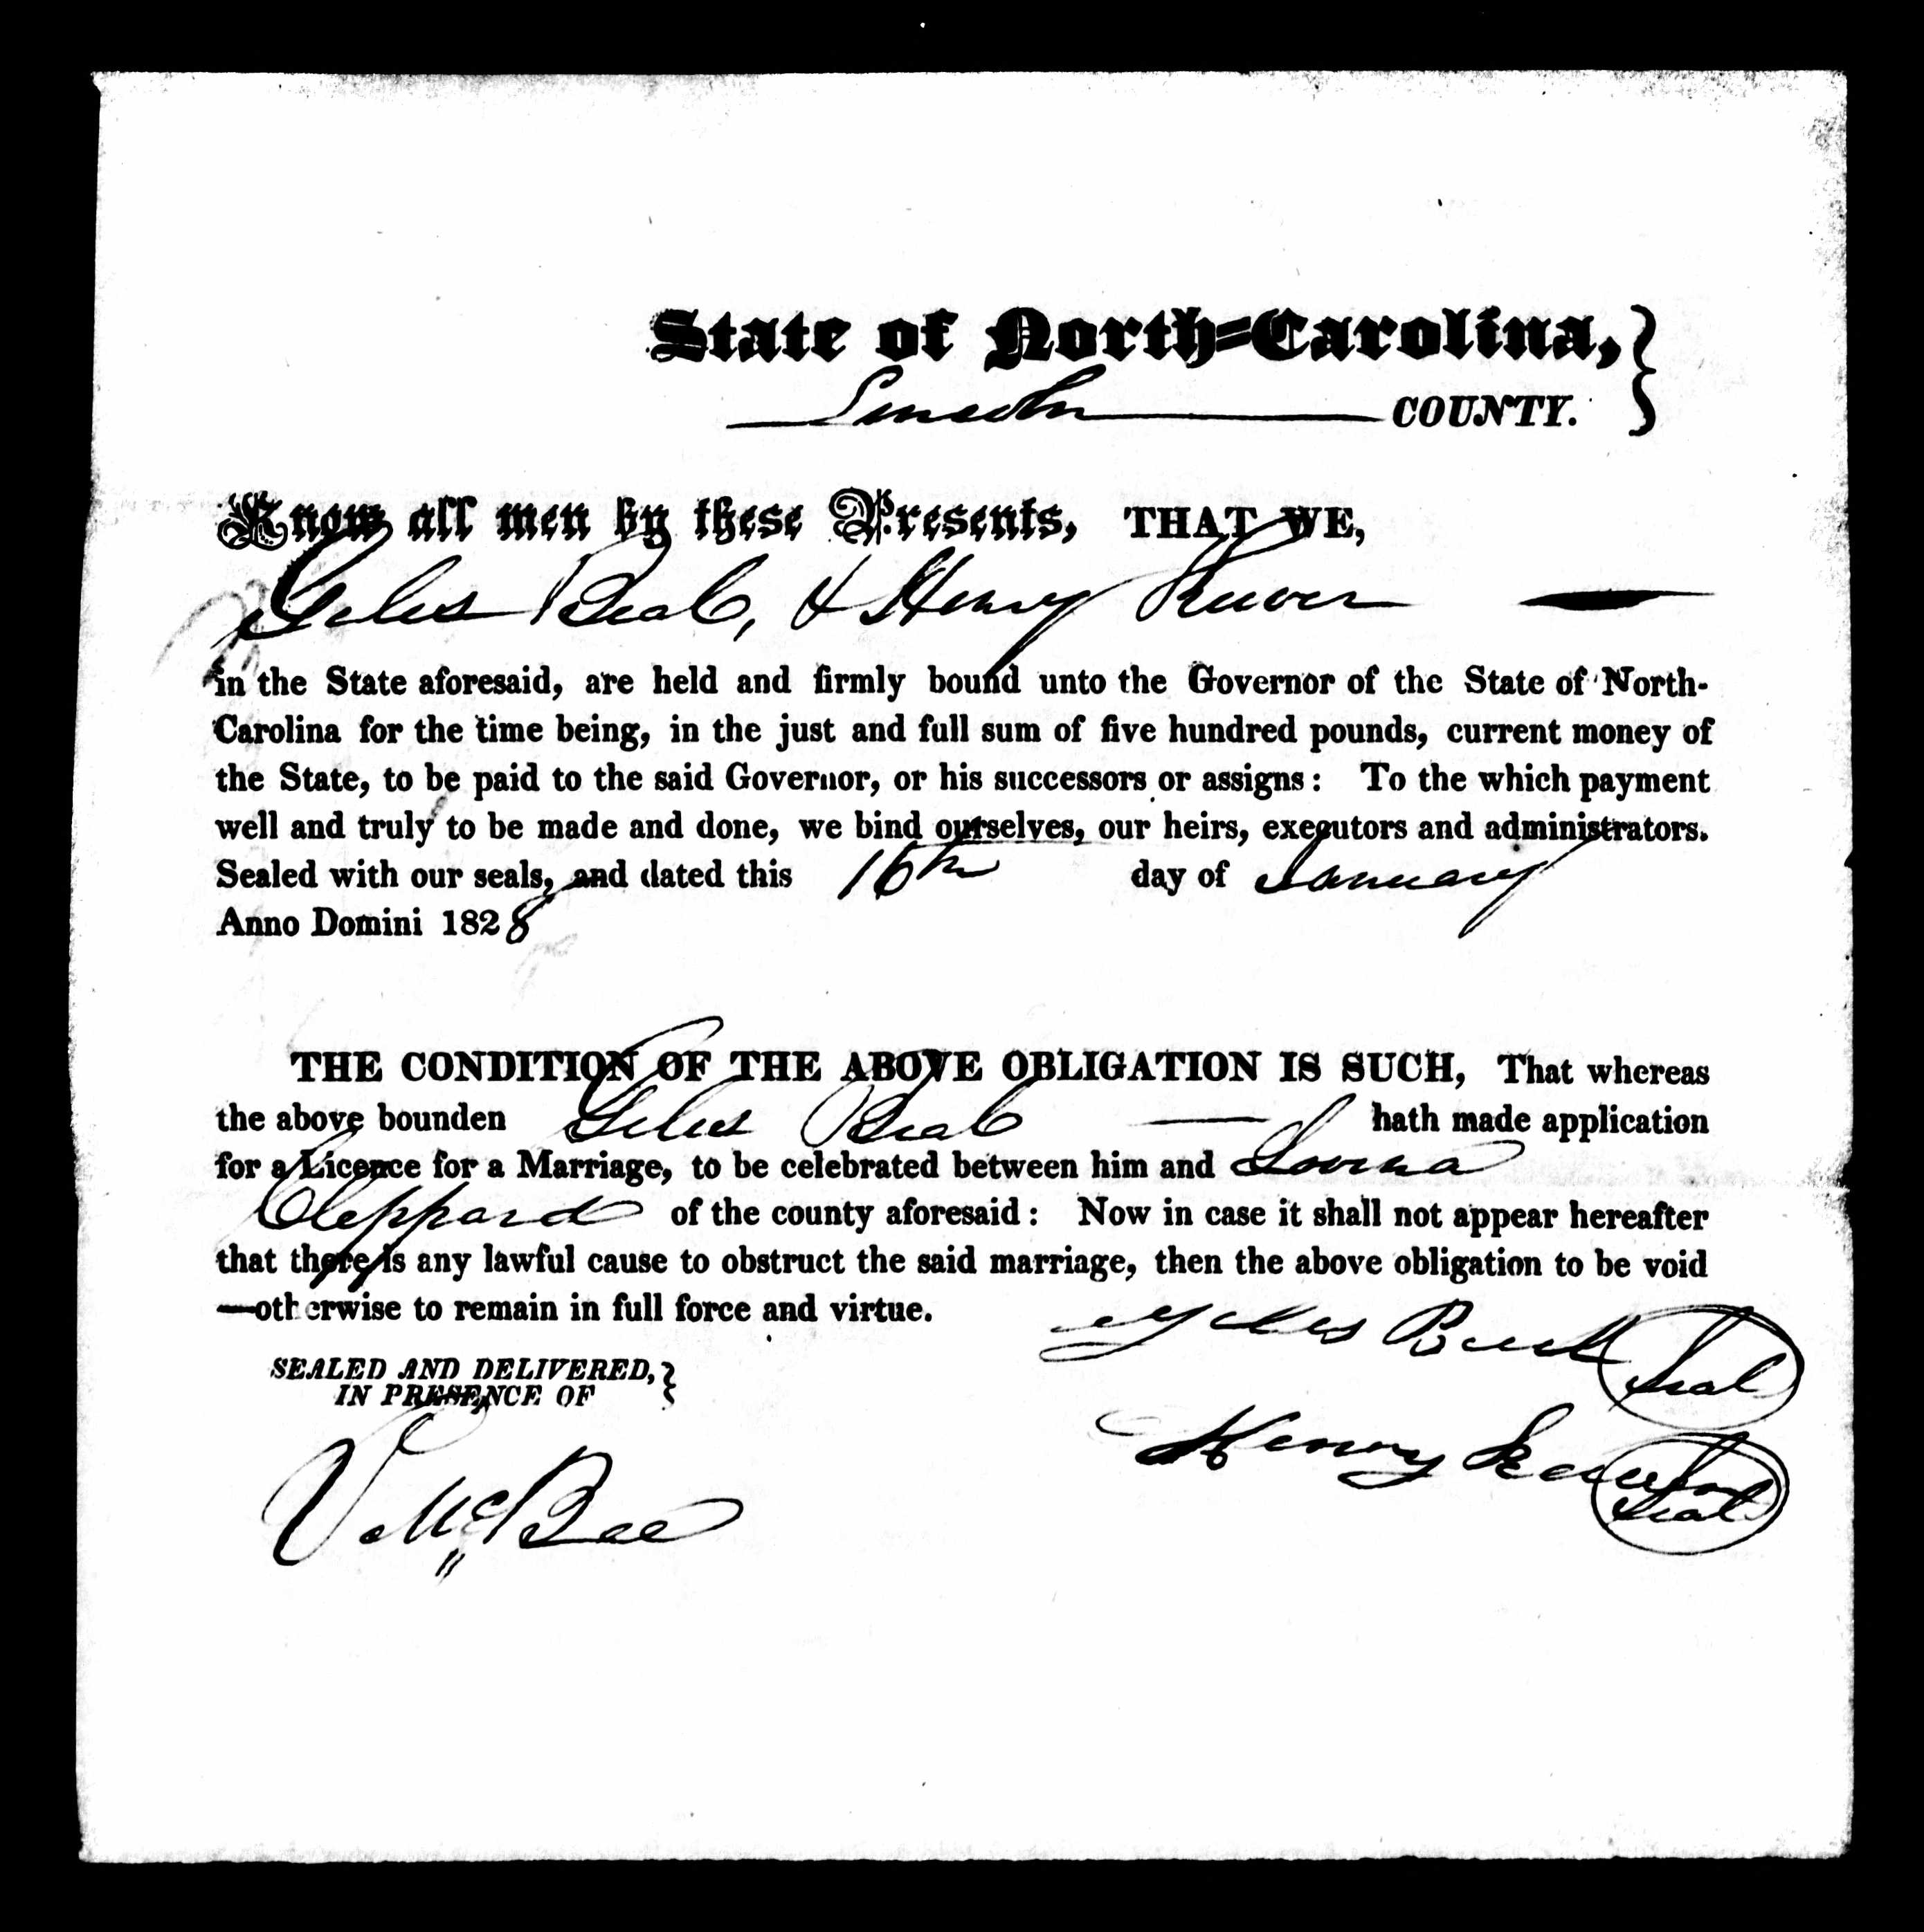 State of North-Carolina,
Lincoln COUNTY.
Know all men by these Presents, THAT WE,
Giles Beal, & Henry
in the State aforesaid, are held and firmly bound unto the Governor of the State of North-
Carolina for the time being, in the just and full sum of five hundred pounds, current money of
the State, to be paid to the said Governor, or his successors or assigns: To the which payment
well and truly to be made and done, we bind ourselves, our heirs, executors and administrators.
Sealed with our seals, and dated this 16th day of January
Anno Domini 1828
THE CONDITION OF THE ABOVE OBLIGATION IS SUCH, That whereas
the above bounden Giles Beal hath made application
for a Licence for a Marriage, to be celebrated between him and
Cleppard of the county aforesaid: Now in case it shall not appear hereafter
that there is any lawful cause to obstruct the said marriage, then the above obligation to be void
—otherwise to remain in full force and virtue.
SEALED AND DELIVERED,
IN PRESENCE OF
Seal
Henry
Seal
V McBee